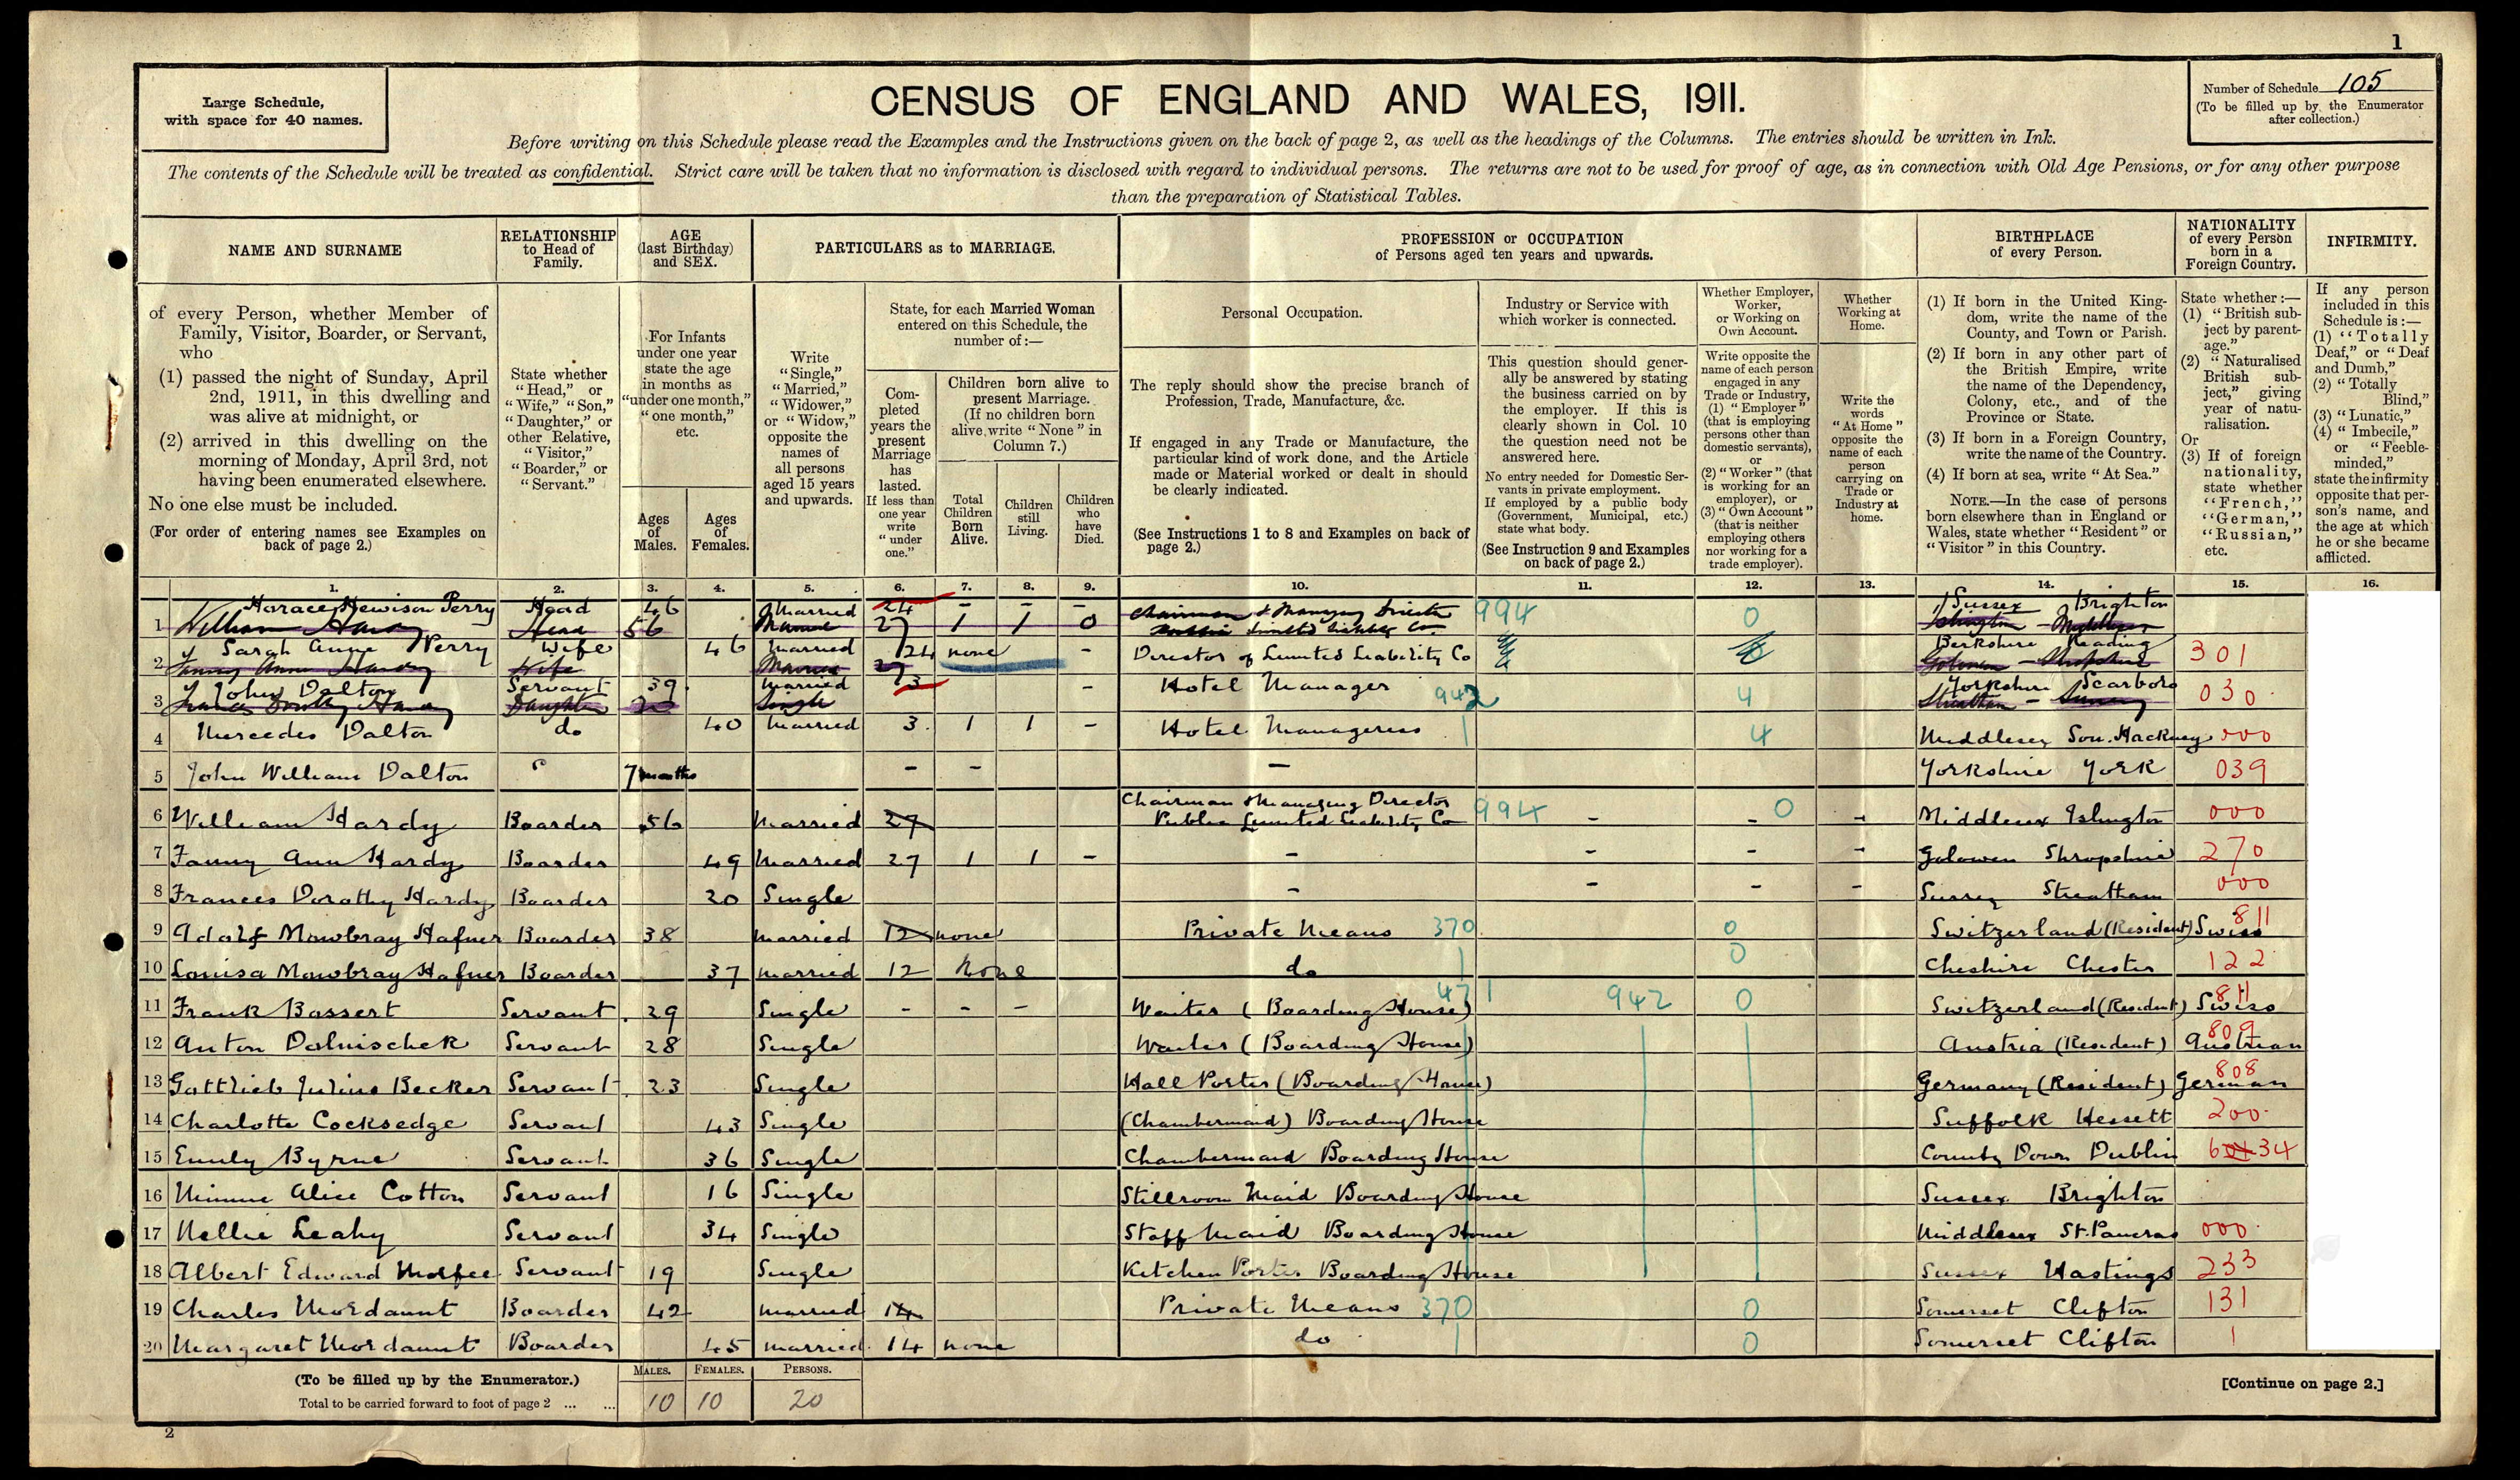 1
Large Schedule,
with space for 40 names.
CENSUS OF ENGLAND AND WALES, 1911.
Number of Schedule 105
(To be filled up by the Enumerator
after collection.)
Before writing on this Schedule please read the Examples and the Instructions given on the back of page 2, as well as the headings of the Columns. The entries should be written in Ink.
The contents of the Schedule will be treated as confidential. Strict care will be taken that no information is disclosed with regard to individual persons. The returns are not to be used for proof of age, as in connection with Old Age Pensions, or for any other purpose
than the preparation of Statistical Tables.
NAME AND SURNAME
of every Person, whether Member of
Family, Visitor, Boarder, or Servant,
who
(1) passed the night of Sunday, April
2nd, 1911, in this dwelling and
was alive at midnight, or
(2) arrived in this dwelling on the
morning of Monday, April 3rd, not
having been enumerated elsewhere.
No one else must be included.
(For order of entering names see Examples on
back of page 2.)
RELATIONSHIP
to Head of
Family.
State whether
"Head," or
"Wife," "Son,"
"Daughter," or
other Relative,
"Visitor,"
"Boarder," or
"Servant."
AGE
(last Birthday)
and SEX.
For Infants
under one year
state the age
in months as
"under one month,"
"one month,"
etc.
Ages
of
Males.
Ages
of
Females.
PARTICULARS as to MARRIAGE.
Write
"Single,"
"Married,"
"Widower,"
or "Widow,"
opposite the
names of
all persons
aged 15 years
and upwards.
State, for each Married Woman
entered on this Schedule, the
number of:—
Com-
pleted
years the
present
Marriage
has
lasted.
If less than
one year
write
"under
one."
Children born alive to
present Marriage.
(If no children born
alive write "None" in
Column 7.)
Total
Children
Born
Alive.
Children
still
Living.
Children
who
have
Died.
PROFESSION or OCCUPATION
of Persons aged ten years and upwards.
Personal Occupation.
The reply should show the precise branch of
Profession, Trade, Manufacture, &c.
If engaged in any Trade or Manufacture, the
particular kind of work done, and the Article
made or Material worked or dealt in should
be clearly indicated.
(See Instructions 1 to 8 and Examples on back of
page 2.)
Industry or Service with
which worker is connected.
This question should gener-
ally be answered by stating
the business carried on by
the employer. If this is
clearly shown in Col. 10
the question need not be
answered here.
No entry needed for Domestic Ser-
vants in private employment.
If employed by a public body
(Government, Municipal, etc.)
state what body.
(See Instruction 9 and Examples
on back of page 2.)
Whether Employer,
Worker,
or Working on
Own Account.
Write opposite the
name of each person
engaged in any
Trade or Industry,
(1) "Employer"
(that is employing
persons other than
domestic servants),
or
(2) "Worker" (that
is working for an
employer), or
(3) "Own Account"
(that is neither
employing others
nor working for a
trade employer).
Whether
Working at
Home.
Write the
words
"At Home"
opposite the
name of each
person
carrying on
Trade or
Industry at
home.
BIRTHPLACE
of every Person.
(1) If born in the United King-
dom, write the name of the
County, and Town or Parish.
(2) If born in any other part of
the British Empire, write
the name of the Dependency,
Colony, etc., and of the
Province or State.
(3) If born in a Foreign Country,
write the name of the Country.
(4) If born at sea, write "At Sea."
NOTE.—In the case of persons
born elsewhere than in England or
Wales, state whether "Resident" or
"Visitor" in this Country.
NATIONALITY
of every Person
born in a
Foreign Country.
State whether:—
(1) "British sub-
ject by parent-
age."
(2) "Naturalised
British sub-
ject," giving
year of natu-
ralisation.
Or
(3) If of foreign
nationality,
state whether
"French,"
"German,"
"Russian,"
etc.
INFIRMITY.
If any person
included in this
Schedule is:—
(1) "Totally
Deaf," or "Deaf
and Dumb,"
(2) "Totally
Blind,"
(3) "Lunatic,"
(4) "Imbecile,"
or "Feeble-
minded,"
state the infirmity
opposite that per-
son's name, and
the age at which
he or she became
afflicted.
1. 2. 3. 4. 5. 6. 7. 8. 9. 10. 11. 12. 13. 14. 15. 16.
Horace Hewison Perry Head 46 Married 24 - - - Sussex Brighton
1 William Hardy Head 56 Married 27 1 1 0 Chairman & Managing Director Public Limited Liability Co 994 0 Islington - Middlesex
Sarah Anne Perry Wife 46 Married 24 none - Director of Limited Liability Co Berkshire Reading 301
2 Fanny Anne Hardy Wife Married 27 Golowen - Shropshire
John Dalton Servant 39 Married 3 - Hotel Manager 942 4 Yorkshire Scarboro 030
3 Frances Dorothy Hardy Daughter 20 Single Streatham - Surrey
4 Mercedes Dalton do 40 Married 3 1 1 - Hotel Manageress 4 Middlesex Sou. Hackney 000
5 John William Dalton 7 months - - - Yorkshire York 039
6 William Hardy Boarder 56 Married 27 Chairman & Managing Director Public Limited Liability Co 994 - - 0 - Middlesex Islington 000
7 Fanny Ann Hardy Boarder 49 Married 27 1 1 - - - - - Golowen Shropshire 270
8 Frances Dorothy Hardy Boarder 20 Single - - - - Surrey Streatham 000
9 Adolf Mowbray Hafner Boarder 38 Married 12 none Private Means 370 0 Switzerland (Resident) Swiss 811
10 Louisa Mowbray Hafner Boarder 37 Married 12 None do 0 Cheshire Chester 122
11 Frank Bossert Servant 29 Single - - - Waiter (Boarding House) 471 942 0 Switzerland (Resident) Swiss 811
12 Anton Dolnischek Servant 28 Single Waiter (Boarding House) Austria (Resident) Austrian 809
13 Gottlieb Julius Becker Servant 23 Single Hall Porter (Boarding House) Germany (Resident) German 808
14 Charlotte Cocksedge Servant 43 Single (Chambermaid) Boarding House Suffolk Hessett 200
15 Emily Byrne Servant 36 Single Chambermaid Boarding House County Down Dublin 634
16 Minnie Alice Cotton Servant 16 Single Stillroom Maid Boarding House Sussex Brighton
17 Nellie Leahy Servant 34 Single Staff Maid Boarding House Middlesex St. Pancras 000
18 Albert Edward Servant 19 Single Kitchen Porter Boarding House Sussex Hastings 233
19 Charles Mordaunt Boarder 42 Married 14 Private Means 370 0 Somerset Clifton 131
20 Margaret Mordaunt Boarder 45 Married 14 none do 0 Somerset Clifton
(To be filled up by the Enumerator.)
Total to be carried forward to foot of page 2 ... ...
MALES. FEMALES. PERSONS.
10 10 20
[Continue on page 2.]
2